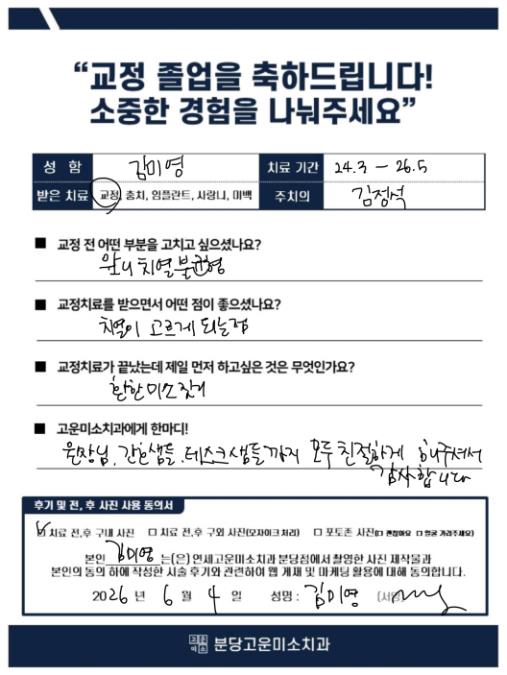 “교정 졸업을 축하드립니다!
소중한 경험을 나눠주세요”
성 함 김미영 치료 기간 24.3 - 26.5
받은 치료 교정, 충치, 임플란트, 사랑니, 미백 주치의 김정석
■ 교정 전 어떤 부분을 고치고 싶으셨나요?
앞니 치열 불균형
■ 교정치료를 받으면서 어떤 점이 좋으셨나요?
치열이 고르게 되는점
■ 교정치료가 끝났는데 제일 먼저 하고싶은 것은 무엇인가요?
환한 미소 짓기
■ 고운미소치과에게 한마디!
원장님, 간호샘들, 데스크샘들까지 모두 친절하게 해주셔서
감사합니다
후기 및 전, 후 사진 사용 동의서
☑ 치료 전,후 구내 사진 □ 치료 전,후 구외 사진(모자이크 처리) □ 포토존 사진(□ 괜찮아요 □ 얼굴 가려주세요)
본인 김미영 는(은) 연세고운미소치과 분당점에서 촬영한 사진 제작물과
본인의 동의 하에 작성한 시술 후기와 관련하여 웹 게재 및 마케팅 활용에 대해 동의합니다.
2026 년 6 월 4 일 성명 : 김미영 (서명)
고운미소 분당고운미소치과